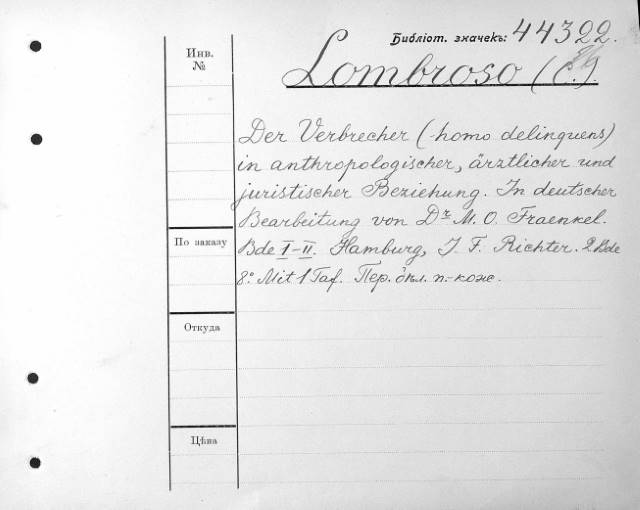 Библіот. значекъ: 44322.
Инв.
№
Lombroso (C.).
Der Verbrecher (homo delinquens)
in anthropologischer, ärztlicher und
juristischer Beziehung. In deutscher
Bearbeitung von Dr M. O. Fraenkel.
По заказу
Bde I-II. Hamburg, J. F. Richter. 2 Bde
8º. Mit 1 Taf. Пер. п.-кож.
Откуда
Цѣна